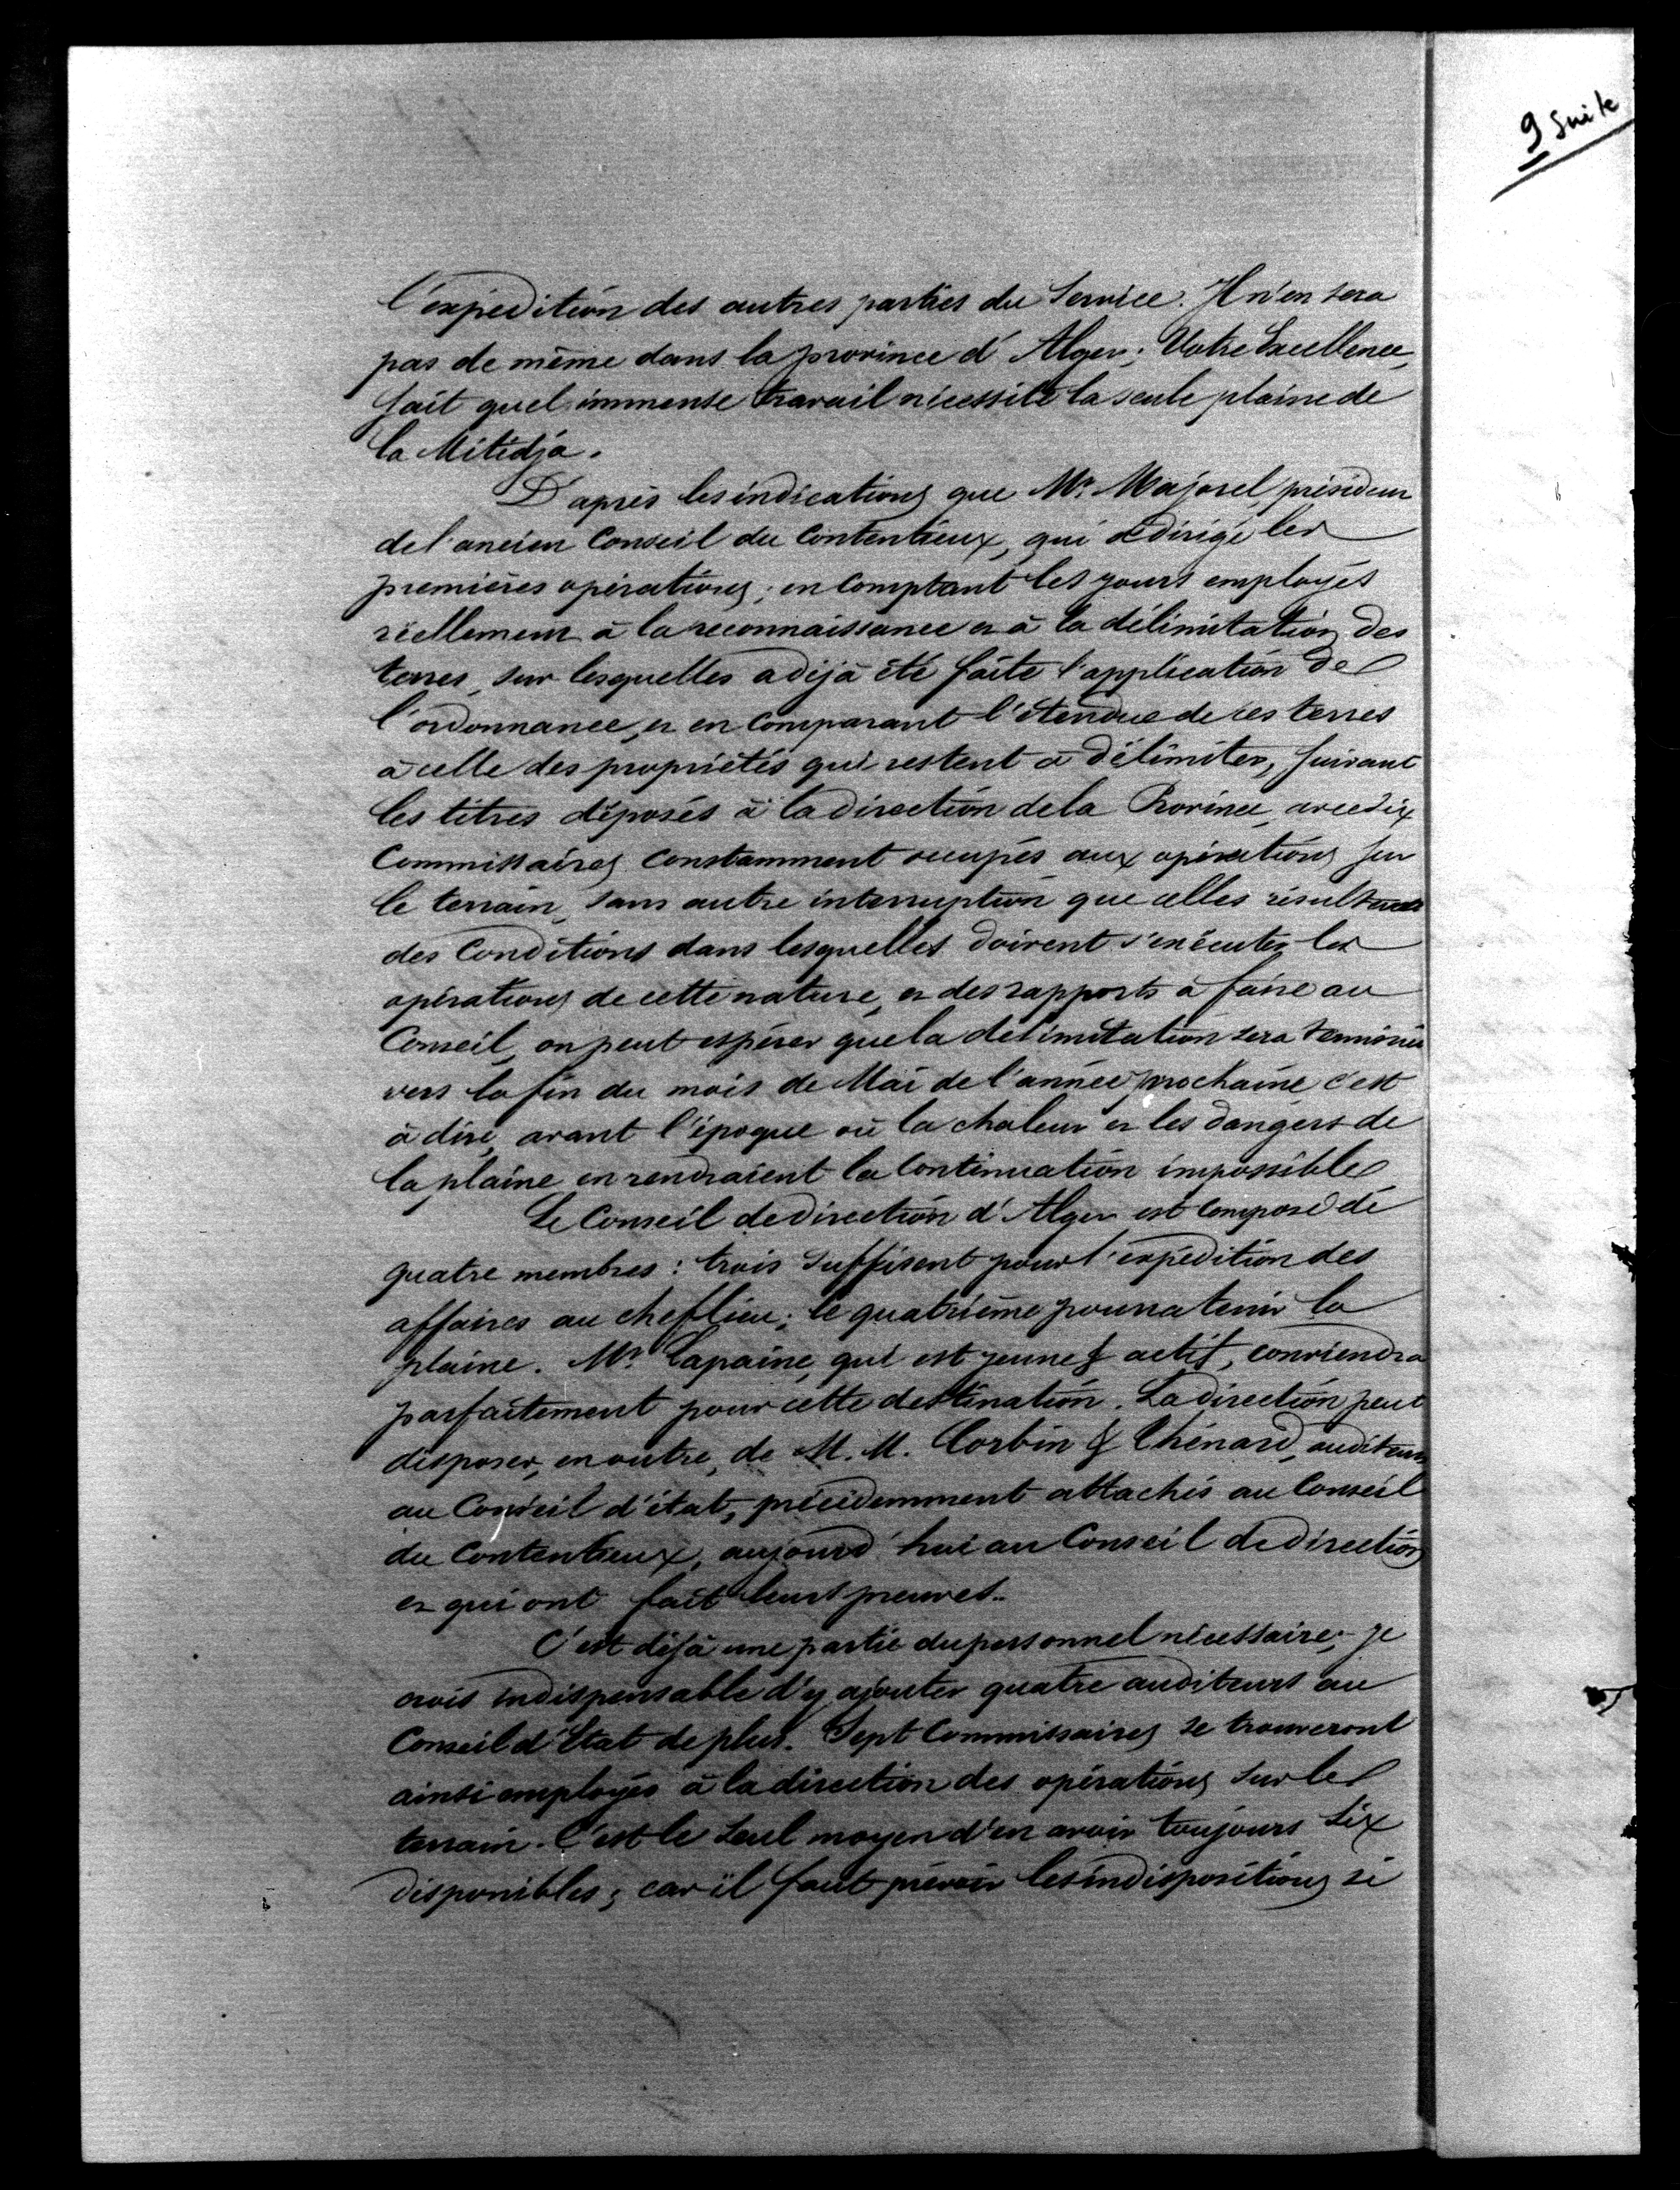 9 suite
l'expédition des autres parties du Service. Il n'en sera
pas de même dans la province d'Alger; Votre Excellence,
sait quel immense travail nécessite la seule plaine de
la Mitidja.
D'après les indications que Mr. Majorel, président
de l'ancien Conseil du Contentieux, qui a dirigé les
premières opérations; en comptant les jours employés
réellement à la reconnaissance et à la délimitation des
terres, sur lesquelles a déjà été faite l'application de
l'ordonnance, et en comparant l'étendue de ces terres
à celle des propriétés qui restent à délimiter, suivant
les titres déposés à la direction de la Province, avec six
Commissaires constamment occupés aux opérations sur
le terrain, sans autre interruption que celles résultant
des Conditions dans lesquelles doivent s'exécuter les
opérations de cette nature, et des rapports à faire au
Conseil, on peut espérer que la délimitation sera terminée
vers la fin du mois de Mai de l'année prochaine c'est
à dire, avant l'époque où la chaleur et les dangers de
la plaine en rendraient la Continuation impossible
Le Conseil de direction d'Alger est composé de
quatre membres : trois suffisent pour l'expédition des
affaires au chef lieu; le quatrième pourra tenir la
plaine. Mr. Lapaine, qui est jeune & actif, conviendra
parfaitement pour cette destination. La direction peut
disposer, en outre, de M. M. Corbin & Chénard, auditeurs
au Conseil d'état, précédemment attachés au Conseil
du Contentieux, aujourd'hui au Conseil de direction
et qui ont fait leurs preuves..
C'est déjà une partie du personnel nécessaire; je
crois indispensable d'y ajouter quatre auditeurs au
Conseil d'Etat de plus. Sept Commissaires se trouveront
ainsi employés à la direction des opérations sur le
terrain. C'est le seul moyen d'en avoir toujours six
disponibles; car il faut prévoir les indispositions si